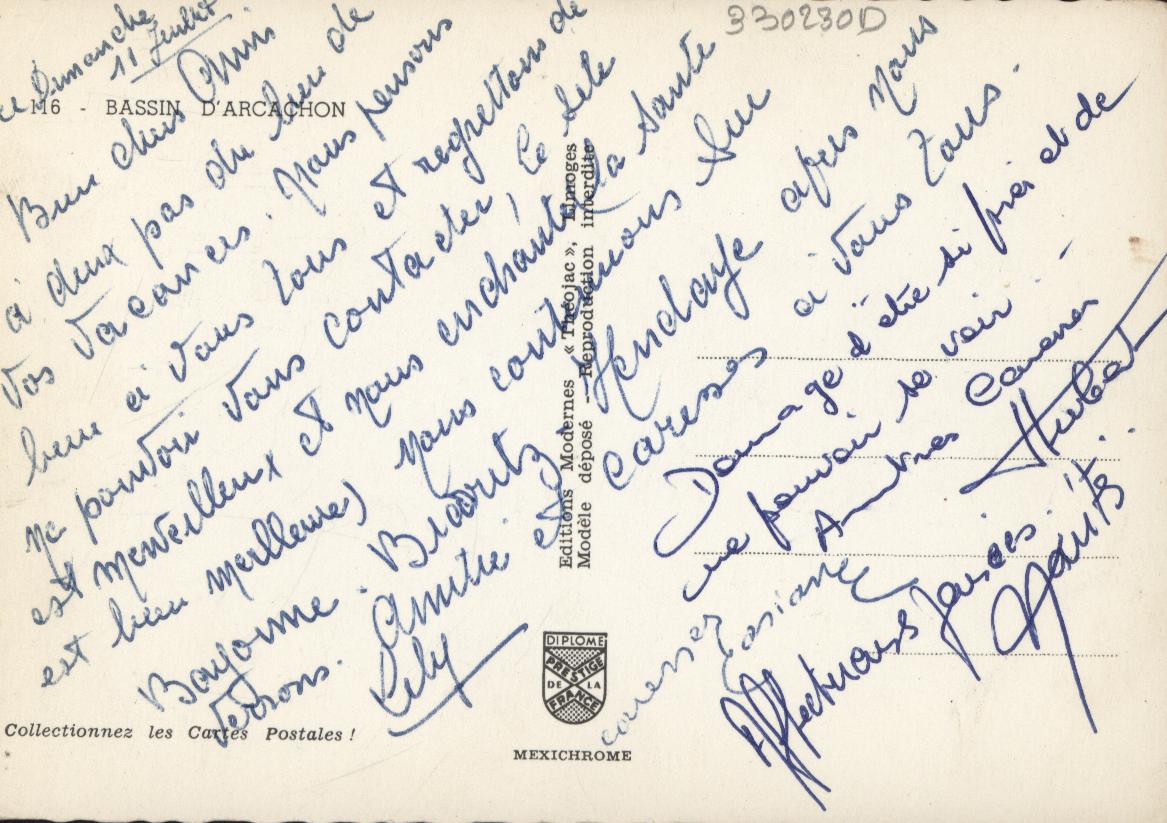 330230D
ce Dimanche
11 Juillet
116 - BASSIN D'ARCACHON
Bien chers Amis
à deux pas du lieu de
vos vacances. Nous pensons
bien à vous tous et regrettons de
ne pouvoir vous contacter, le site
est merveilleux et nous enchante, (la santé
est bien meilleure) nous continuons sur
Bayonne. Biarritz. Hendaye après nous
verrons. Amitié et caresses à vous tous.
Lily
Dommage d'être si près et de
ne pouvoir se voir.
Amitiés
Hubert
caresses
Josiane
Affectueuses
Editions Modernes « Théojac », Limoges
Modèle déposé — Reproduction interdite
DIPLOME
PRESTIGE
DE LA
FRANCE
MEXICHROME
Collectionnez les Cartes Postales !